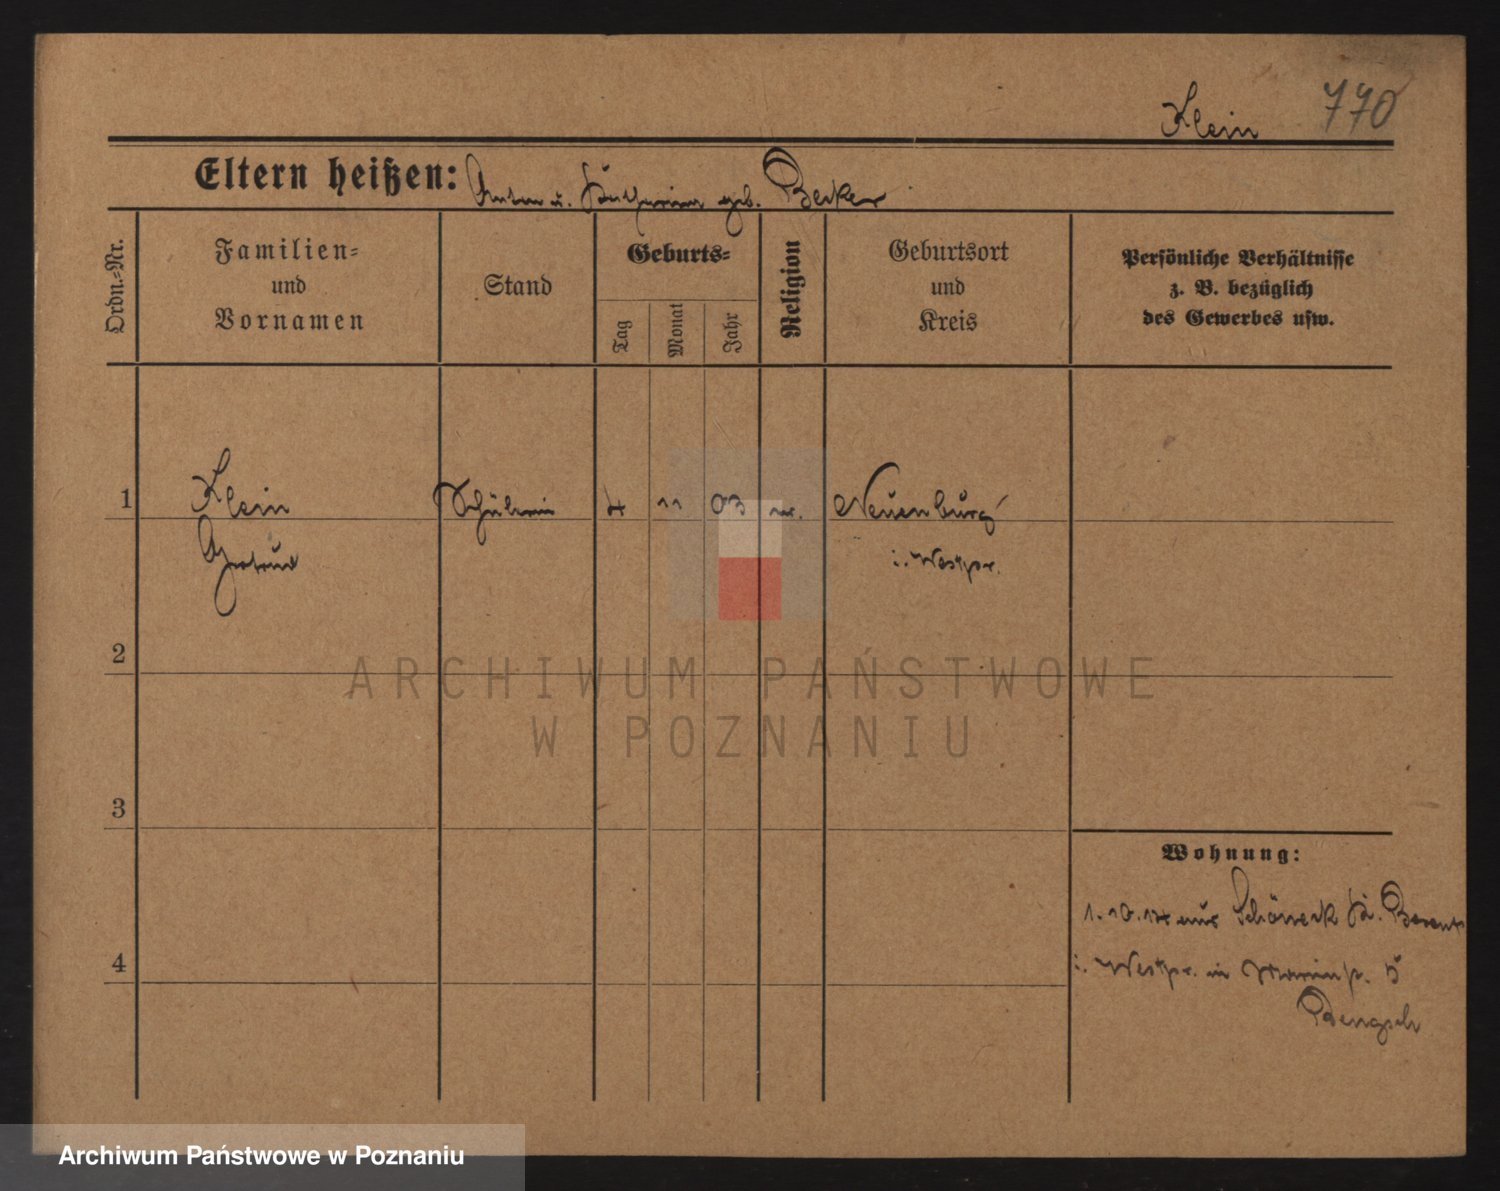 Klein 770
Eltern heißen: Anton u. Katharina geb. Becker
Ordn.=Nr.
Familien=
und
Vornamen
Stand
Geburts=
Tag
Monat
Jahr
Religion
Geburtsort
und
Kreis
Persönliche Verhältnisse
z. B. bezüglich
des Gewerbes usw.
1 Klein Schülerin 4 11 03 Neuenburg
Gertrud i. Westpr.
2
ARCHIWUM PAŃSTWOWE
W POZNANIU
3
Wohnung:
1.10.14 aus Schöneck Kr. Berent
4
i. Westpr. in 5
Bengsch
Archiwum Państwowe w Poznaniu